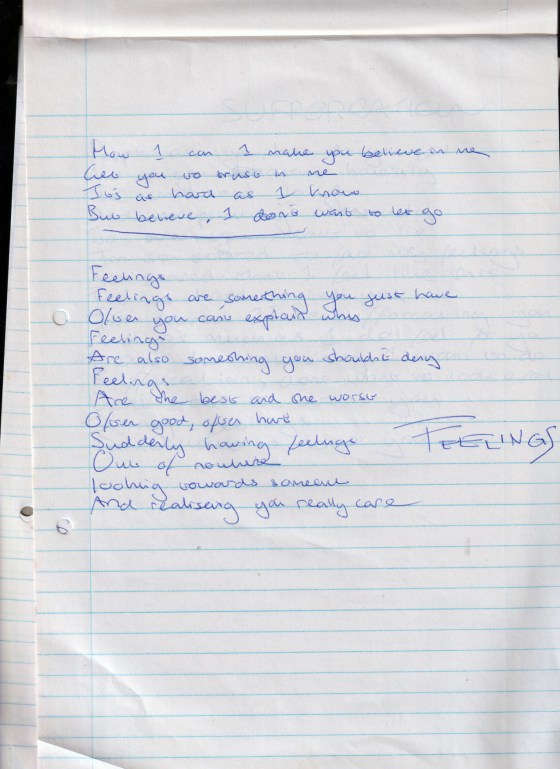 How I can I make you believe in me
Get you to trust in me
It's as hard as I know
But believe, I don't want to let go
Feelings
Feelings are something you just have
Often you can't explain why
Feelings
Are also something you shouldn't deny
Feelings
Are the best and the worst
Often good, often hurt
Suddenly having feelings
FEELINGS
Out of nowhere
looking towards someone
And realising you really care
6